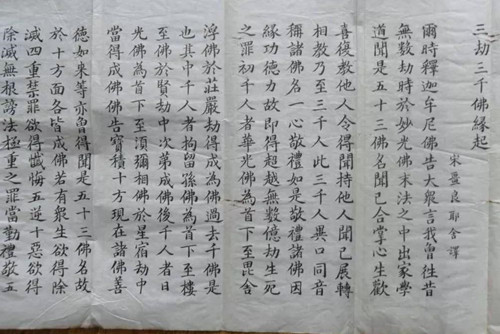 三劫三千佛緣起
宋畺良耶舍譯
爾時釋迦牟尼佛告大衆言我曾往昔
無數劫時於妙光佛末法之中出家學
道聞是五十三佛名聞已合掌心生歡
喜復教他人令得聞持他人聞已展轉
相教乃至三千人此三千人異口同音
稱諸佛名一心敬禮如是敬禮諸佛因
緣功德力故即得超越無數億劫生死
之罪初千人者華光佛為首下至毘舍
浮佛於莊嚴劫得成為佛過去千佛是
也其中千人者拘留孫佛為首下至樓
至佛於賢劫中次第成佛後千人者日
光佛為首下至湏彌相佛於星宿劫中
當得成佛佛告寶積十方現在諸佛善
德如来等亦曾得聞是五十三佛名故
於十方面各皆成佛若有衆生欲得除
滅四重禁罪欲得懺悔五逆十惡欲得
除滅無根謗法極重之罪當勤禮敬五